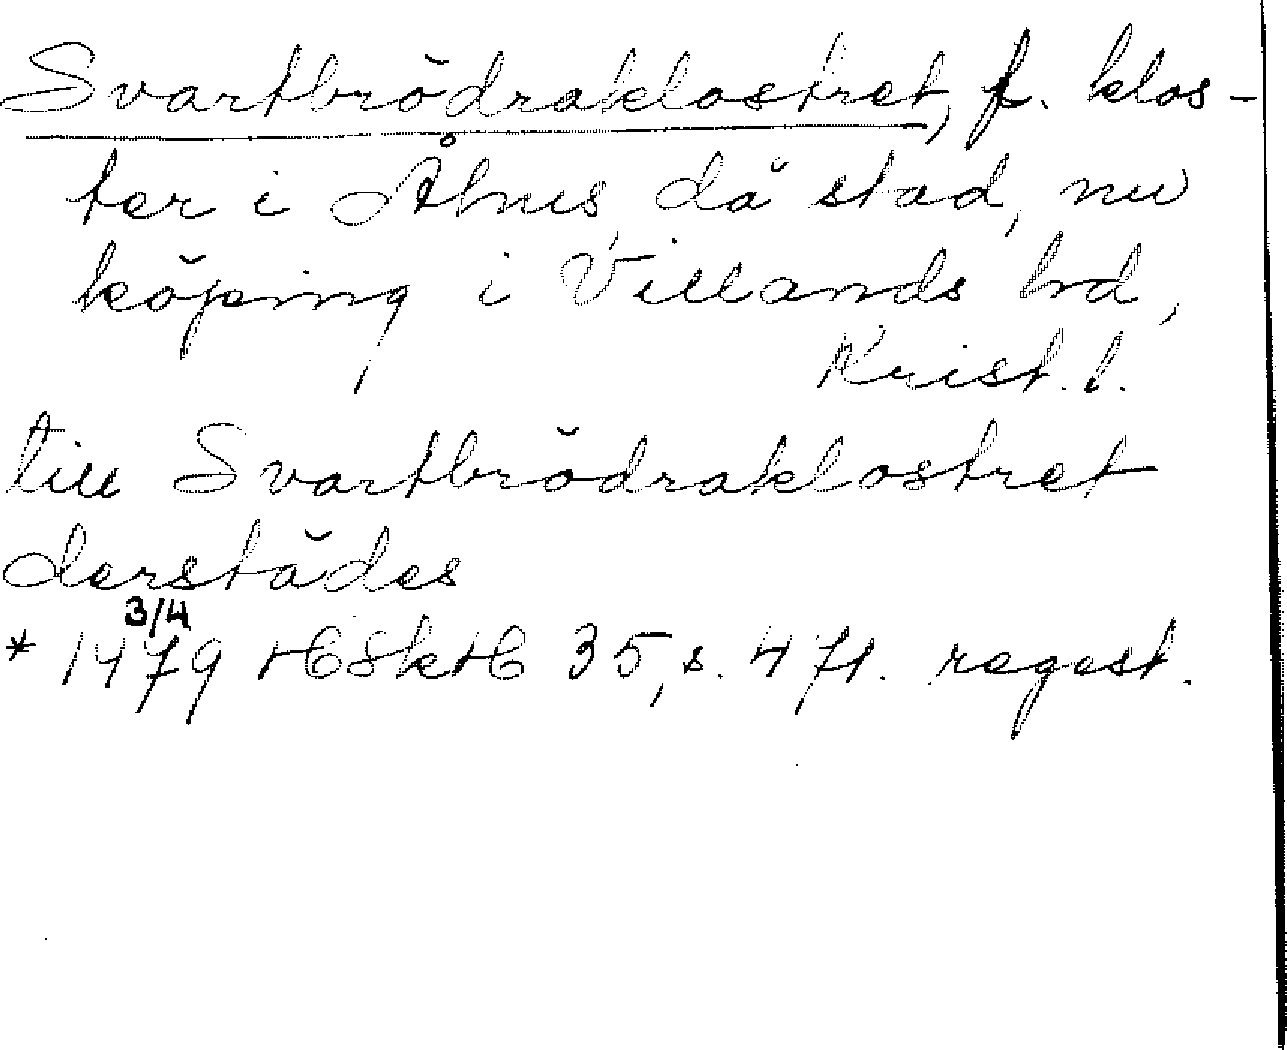 Svartbrödraklostret, f. klos-
ter i Åhus, då stad, nu
köping i Villands hd,
Krist. l.
till Svartbrödraklostret
derstädes
3/4
* 1479 HSkH 35, s. 471. regest.